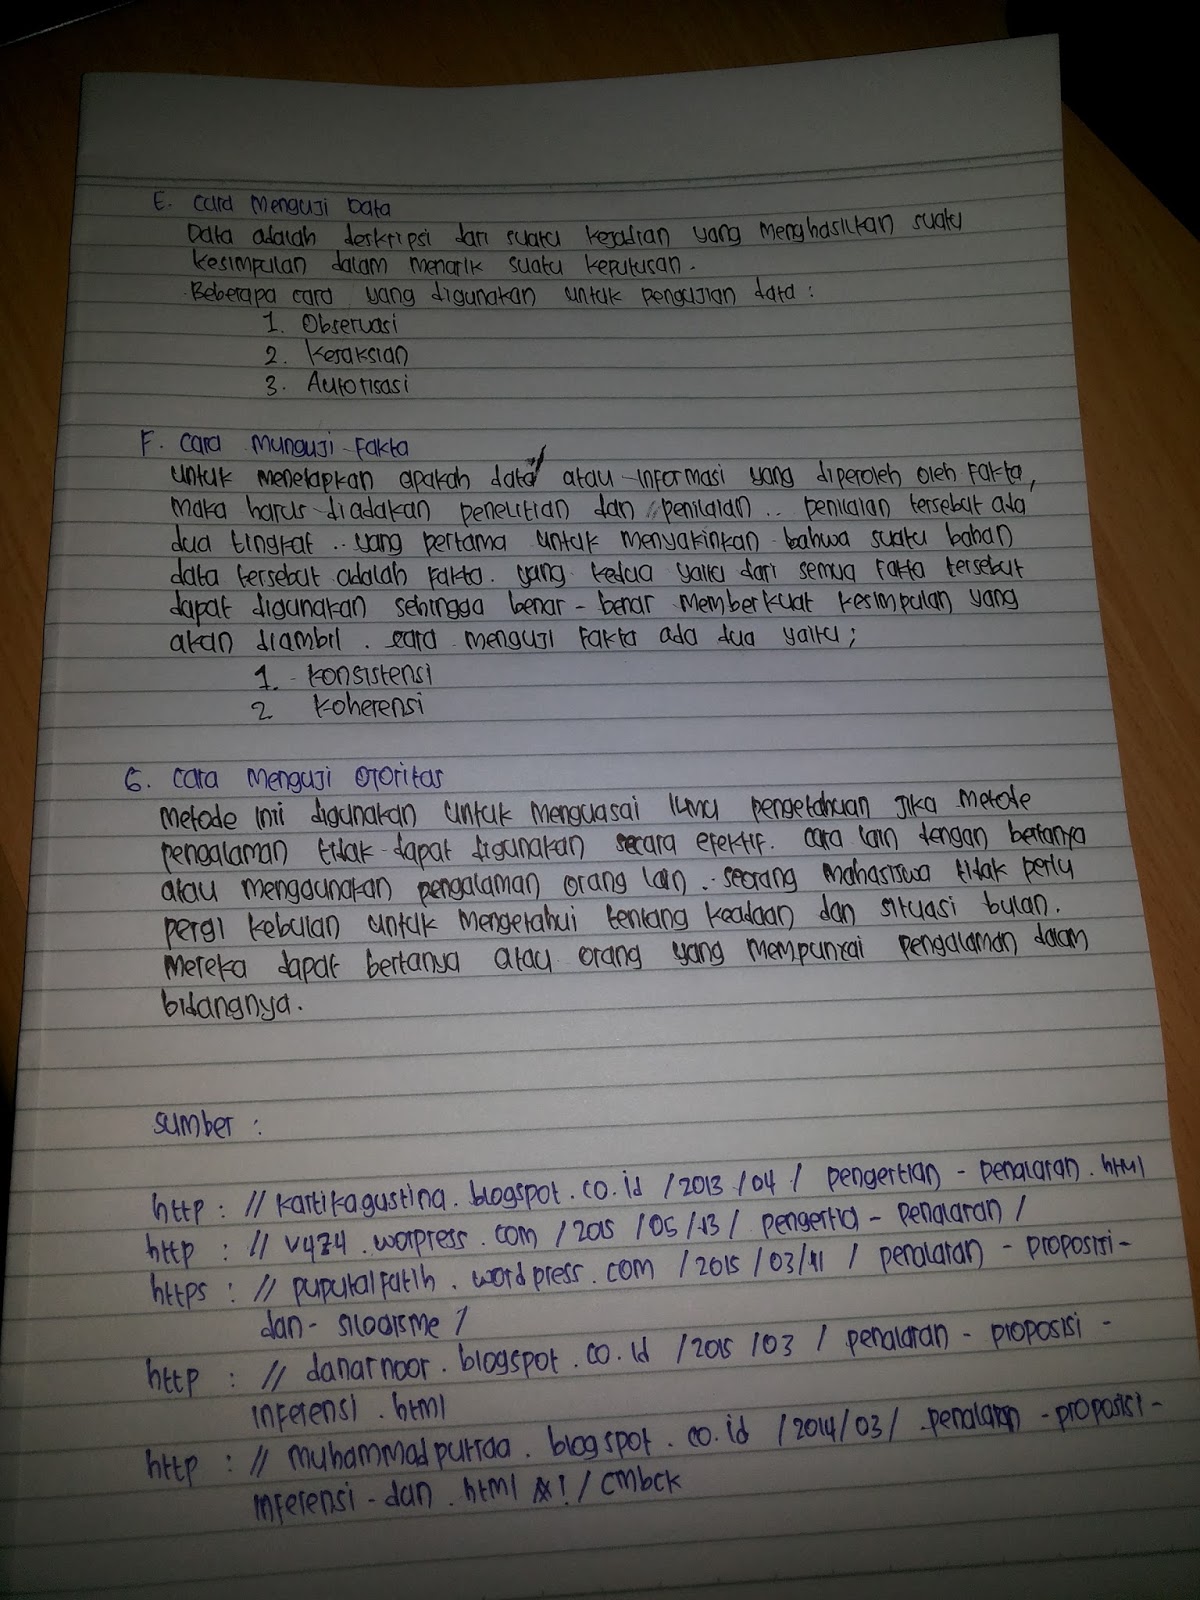 E. Cara Menguji Data
Data adalah deskripsi dari suatu kejadian yang menghasilkan suatu
kesimpulan dalam menarik suatu keputusan.
Beberapa cara yang digunakan untuk pengujian data :
1. Observasi
2. Kesaksian
3. Autorisasi
F. Cara Munguji Fakta
untuk menetapkan apakah data atau informasi yang diperoleh oleh fakta,
maka harus diadakan penelitian dan penilaian .. penilaian tersebut ada
dua tingkat .. yang pertama untuk menyakinkan bahwa suatu bahan
data tersebut adalah fakta. yang kedua yaitu dari semua fakta tersebut
dapat digunakan sehingga benar - benar memberkuat kesimpulan yang
akan diambil . cara menguji fakta ada dua yaitu ;
1. konsistensi
2 koherensi
G. Cara Menguji Otoritas
Metode inii digunakan untuk menguasai ilmu pengetahuan jika metode
pengalaman tidak dapat digunakan secara efektif. cara lain dengan bertanya
atau menggunakan pengalaman orang lain .. seorang mahasiswa tidak perlu
pergi kebulan untuk mengetahui tentang keadaan dan situasi bulan.
mereka dapat bertanya atau orang yang mempunyai pengalaman dalam
bidangnya.
sumber :
http : // kartikagustina. blogspot . co. id / 2013 / 04 / pengertian - penalaran . html
http : // v474 . worpress . com / 2015 / 05 / 13 / pengertia - penalaran /
https : // puputalfatih . wordpress . com / 2015 / 03/11 / penalaran - proposisi -
dan - silogisme /
http : // danarnoor . blogspot . co. id / 2015 / 03 / penalaran - proposisi -
inferensi . html
http : // muhammadputraa . blogspot . co. id / 2014/03 / penalaran - proposisi -
inferensi - dan . html ! / cmbck